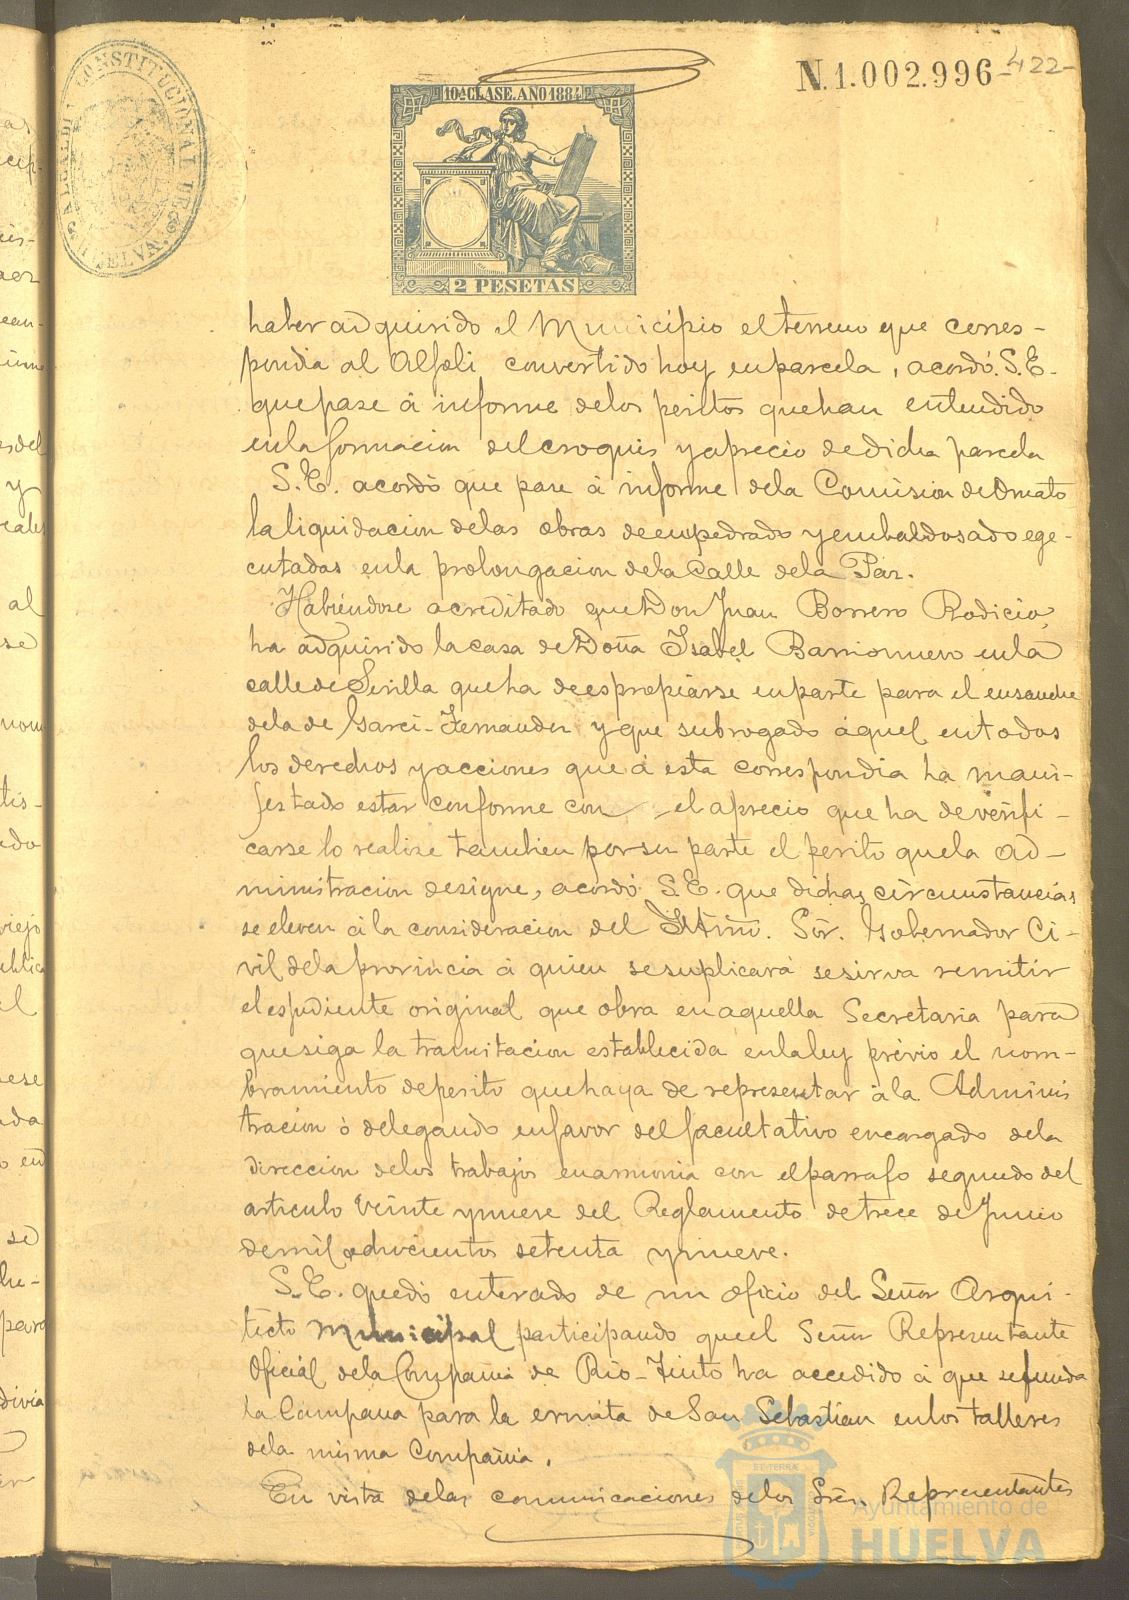 N.1.002.996
422-
ALCALDIA CONSTITUCIONAL DE HUELVA
10ª CLASE. AÑO 1884
2 PESETAS
haber adquirido el Municipio el terreno que corres-
pondia al Alfoli convertido hoy en parcela, acordó S.E.
que pase á informe de los peritos que han entendido
en la formacion del croquis y aprecio de dicha parcela
S.E. acordó que pase á informe de la Comision de Ornato
la liquidacion de las obras de empedrado y embaldosado ege-
cutadas en la prolongacion de la Calle de la Paz.
Habiéndose acreditado que Don Juan Borrero Rodicio,
ha adquirido la casa de Doña Isabel Barrionuevo en la
calle de Sevilla que ha de espropiarse en parte para el ensanche
de la de Garci-Fernandez y que subrogado aquel en todos
los derechos y acciones que á esta correspondia ha mani-
festado estar conforme con el aprecio que ha de verifi-
carse lo realize tambien por su parte el perito que la Ad-
ministracion designe, acordó S.E. que dichas circunstancias
se eleven á la consideracion del Iltmo. Sór. Gobernador Ci-
vil de la provincia á quien se suplicará se sirva remitir
el espediente original que obra en aquella Secretaria para
que siga la tramitacion establecida en la ley prévio el nom-
bramiento de perito que haya de representar á la Adminis
tracion ó delegando en favor del facultativo encargado de la
direccion de los trabajos en armonia con el parrafo segundo del
articulo veinte y nueve del Reglamento de trece de Junio
de mil ochocientos setenta y nueve.
S.E. quedó enterado de un oficio del Señor Arqui-
tecto Municipal participando que el Señor Representante
Oficial de la Compañia de Rio-Tinto ha accedido á que se funda
la Campana para la ermita de San Sebastian en los talleres
de la misma Compañia.
En vista de las comunicaciones de los Sres. Representantes
Ayuntamiento de
HUELVA